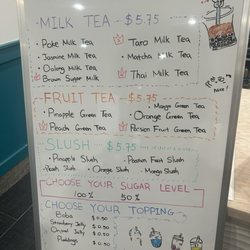 MILK TEA - $5.75
• Poke Milk Tea Taro Milk Tea
• Jasmine Milk Tea • Matcha Milk Tea
• Oolong Milk Tea
Brown Sugar Milk Thai Milk Tea
FRUIT TEA - $5.75
• Mango Green Tea
• Pineapple Green Tea • Orange Green Tea
Peach Green Tea Passion Fruit Green Tea
SLUSH - $5.75
• Pineapple Slush Passion Fruit Slush
• Peach Slush • Orange Slush • Mango Slush
CHOOSE YOUR SUGAR LEVEL
100% 50%
CHOOSE YOUR TOPPING
Boba $0.50
Strawberry Jelly $0.50
Crystal Jelly $0.50
Puddings $0.50